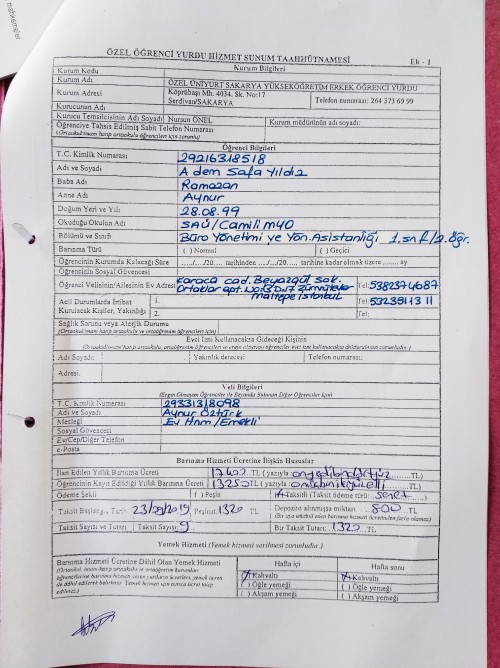 mahkemeler
ÖZEL ÖĞRENCİ YURDU HİZMET SUNUM TAAHHÜTNAMESİ
Ek - 1
Kurum Bilgileri
Kurum Kodu
Kurum Adı ÖZEL ÜNİYURT SAKARYA YÜKSEKÖĞRETİM ERKEK ÖĞRENCİ YURDU
Kurum Adresi Köprübaşı Mh. 4034. Sk. No:17 Serdivan/SAKARYA Telefon numarası: 264 373 69 99
Kurucunun Adı
Kurucu Temsilcisinin Adı Soyadı Nursun ÖNEL Kurum müdürünün adı soyadı:
Öğrenciye Tahsis Edilmiş Sabit Telefon Numarası
(Ortaokul/imam hatip ortaokulu öğrencileri için zorunlu)
Öğrenci Bilgileri
T.C. Kimlik Numarası 29216318518
Adı ve Soyadı Adem Safa Yıldız
Baba Adı Ramazan
Anne Adı Aynur
Doğum Yeri ve Yılı 28.08.99
Okuduğu Okulun Adı SAÜ/Camili myo
Bölümü ve Sınıfı Büro Yönetimi ve Yön. Asistanlığı 1.snf/2.öğr.
Barınma Türü ( ) Normal ( ) Geçici
Öğrencinin Kurumda Kalacağı Süre ..../..../20.... tarihinden ..../..../20.... tarihine kadar olmak üzere ........ ay
Öğrencinin Sosyal Güvencesi
Öğrenci Velisinin/Ailesinin Ev Adresi Karaca cad. Beyazgül sok. Ortaklar apt. Maltepe İstanbul Tel: 5382374687
Acil Durumlarda İrtibat Kurulacak Kişiler, Yakınlığı 1. Tel: 5323511311
2. Tel:
Sağlık Sorunu veya Alerjik Durumu
(Ortaokul/imam hatip ortaokulu ve ortaöğretim öğrencileri için)
Evci İzni Kullanacaksa Gideceği Kişinin
Adı Soyadı: Yakınlık derecesi: Telefon numarası:
Adresi.
Veli Bilgileri
(Ergin Olmayan Öğrenciler ile Beyanda Bulunan Diğer Öğrenciler İçin)
T.C. Kimlik Numarası 29331318098
Adı ve Soyadı Aynur Öztürk
Mesleği Ev Hnm/Emekli
Sosyal Güvencesi
Ev/Cep/Diğer Telefon
e-Posta
Barınma Hizmeti Ücretine İlişkin Hususlar
İlan Edilen Yıllık Barınma Ücreti 17400 TL (yazıyla onyedibindörtyüz TL)
Öğrencinin Kayıt Edildiği Yıllık Barınma Ücreti 13250 TL (yazıyla TL)
Ödeme Şekli ( ) Peşin Taksitli (Taksit ödeme türü: senet)
Taksit Başlangı., Tarih: 23/09/2019 Peşinat. 1320 TL Depozito alınmışsa miktarı 800 TL
Taksit Sayısı ve Tutarı Taksit Sayısı: 9 Bir Taksit Tutarı: 1325 TL
Yemek Hizmeti (Yemek hizmeti verilmesi zorunludur.)
Barınma Hizmeti Ücretine Dâhil Olan Yemek Hizmeti
Hafta içi Hafta sonu
Kahvaltı Kahvaltı
( ) Öğle yemeği ( ) Öğle yemeği
( ) Akşam yemeği ( ) Akşam yemeği